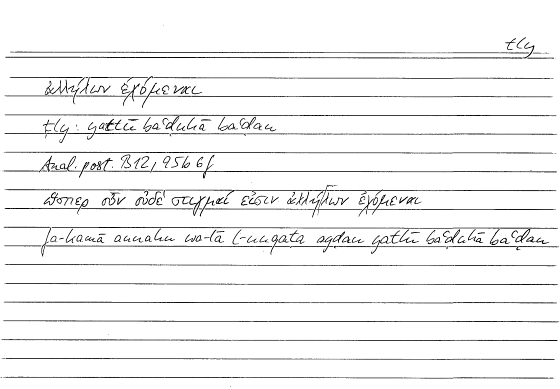 tly
ἀλλήλων ἐχόμεναι
tly: yatlū baʿḍuhā baʿḍan
Anal. post. B12, 95b6f
ὥσπερ οὖν οὐδέ στιγμαί εἰσιν ἀλλήλων ἐχόμεναι
fa-kamā annahu wa-lā l-nuqaṭa ayḍan yatlū baʿḍuhā baʿḍan